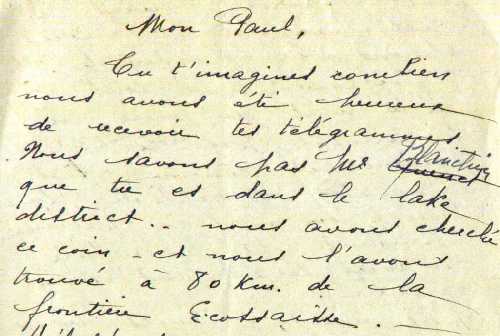 Mon Paul,
Tu t'imagines combien
nous avons été heureux
de recevoir tes télégrammes
Nous savons pas Mr Blanchin
que tu es dans le lake
district.. nous avons cherché
ce coin - et nous l'avons
trouvé à 80 Km. de la
frontière Ecossaisse.